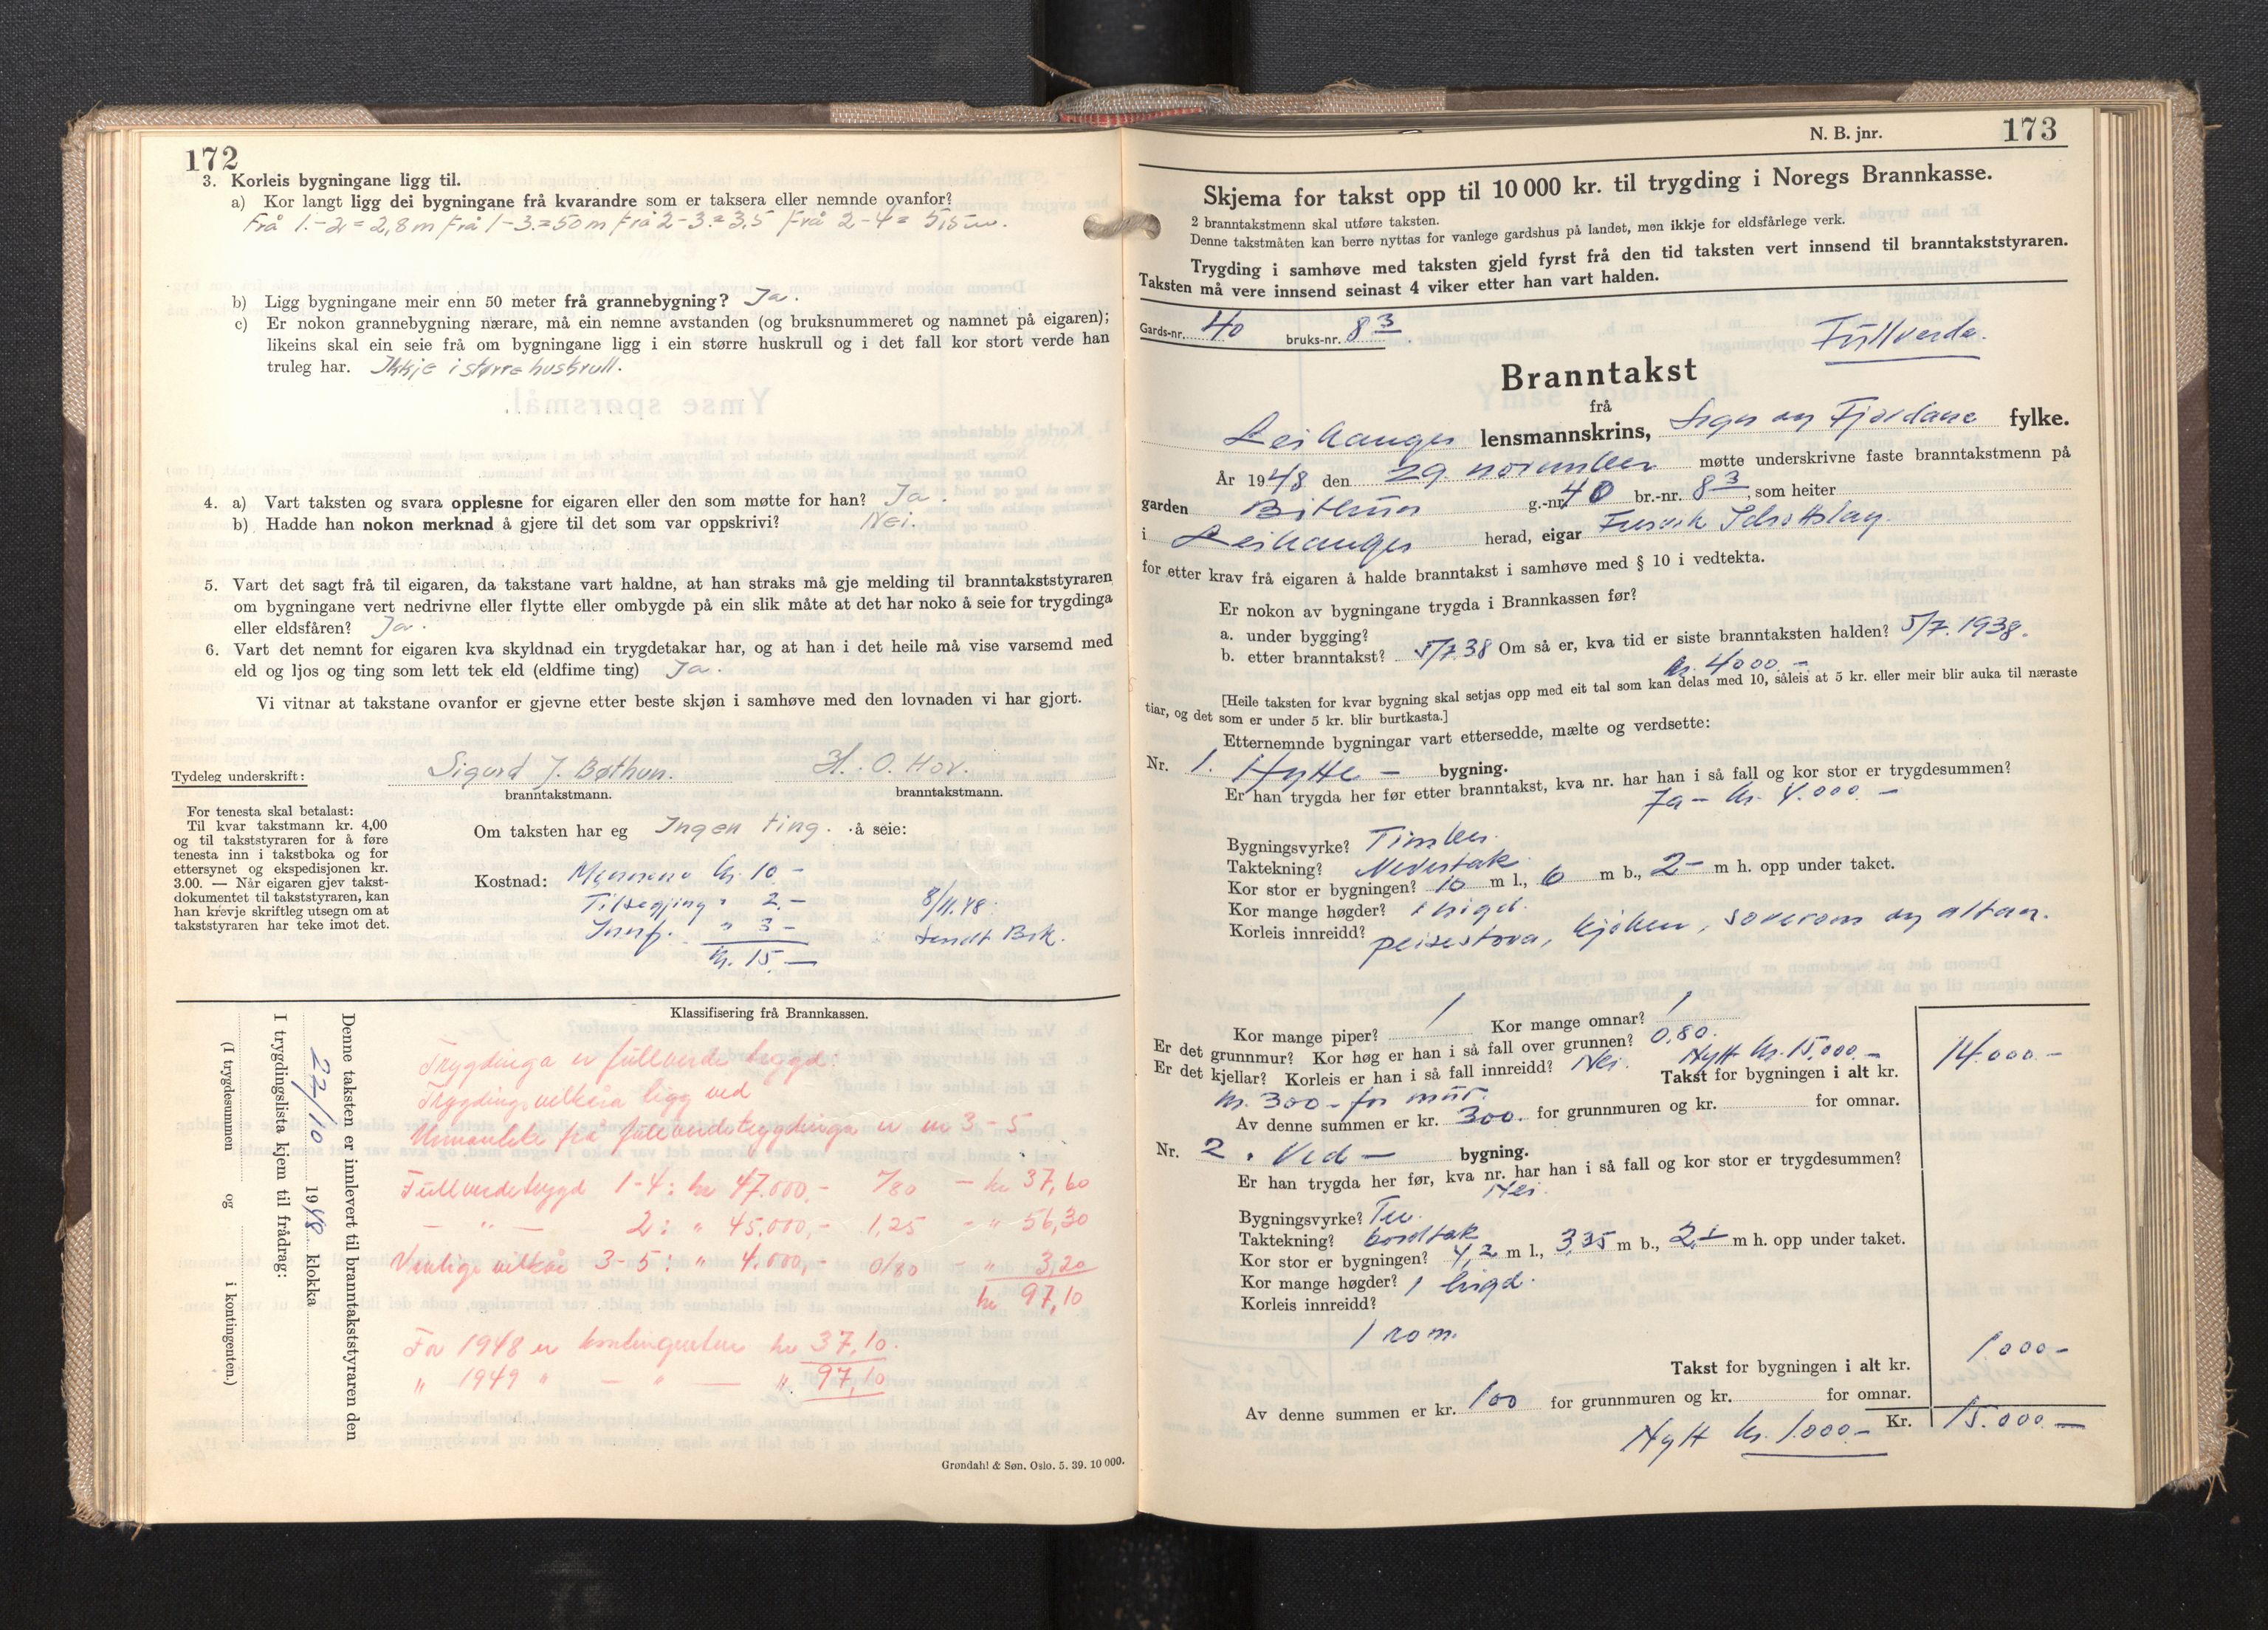 172
3. Korleis bygningane ligg til.
a) Kor langt ligg dei bygningane frå kvarandre som er taksera eller nemnde ovanfor?
Frå 1.-2 = 2,8 m Frå 1-3.= 50 m Frå 2-3.= 3,5 Frå 2-4 = 5,5 m.
b) Ligg bygningane meir enn 50 meter frå grannebygning? Ja.
c) Er nokon grannebygning nærare, må ein nemne avstanden (og bruksnummeret og namnet på eigaren);
likeins skal ein seie frå om bygningane ligg i ein større huskrull og i det fall kor stort verde han
truleg har. Ikkje i større huskrull.
4. a) Vart taksten og svara opplesne for eigaren eller den som møtte for han? Ja.
b) Hadde han nokon merknad å gjere til det som var oppskrivi? Nei.
5. Vart det sagt frå til eigaren, da takstane vart haldne, at han straks må gje melding til branntakststyraren
om bygningane vert nedrivne eller flytte eller ombygde på ein slik måte at det har noko å seie for trygdinga
eller eldsfåren? Ja.
6. Vart det nemnt for eigaren kva skyldnad ein trygdetakar har, og at han i det heile må vise varsemd med
eld og ljos og ting som lett tek eld (eldfime ting) Ja.
Vi vitnar at takstane ovanfor er gjevne etter beste skjøn i samhøve med den lovnaden vi har gjort.
Tydeleg underskrift: Sigurd J. Bøthun. H. O. Hov.
branntakstmann. branntakstmann.
For tenesta skal betalast:
Til kvar takstmann kr. 4,00
og til takststyraren for å føre
tenesta inn i takstboka og for
ettersynet og ekspedisjonen kr.
3.00. — Når eigaren gjev takst-
dokumentet til takststyraren, kan
han krevje skriftleg utsegn om at
takststyraren har teke imot det.
Om taksten har eg Ingen ting. å seie:
Kostnad: Mennene kr. 10 -
Tilsegjing " 2.-
" 3 -
kr. 15.-
8/11.48.
Sendt Brk.
Klassifisering frå Brannkassen.
Trygdinga er fullverde trygd.
Trygdingsvilkåra ligg ved
Unnanteke frå fullverdetrygdinga er nr 3-5
Fullverdetrygd 1-4: kr 47.000,- 7/80 - kr 37,60
- " - 2: " 45.000,- 1,25 - " 56,30
Vanlige vilkår 3-5: " 4.000,- 0/80 - " 3,20
kr 97,10
For 1948 er kontingenten kr 37,10.
" 1949 " - " - " 97,10
Denne taksten er innlevert til branntakststyraren den
22/10 1948 klokka
I trygdingslista kjem til frådrag:
(I trygdesummen og i kontingenten.)
Grøndahl & Søn. Oslo. 5. 39. 10 000.
N. B. jnr. 173
Skjema for takst opp til 10 000 kr. til trygding i Noregs Brannkasse.
2 branntakstmenn skal utføre taksten.
Denne takstmåten kan berre nyttas for vanlege gardshus på landet, men ikkje for eldsfårlege verk.
Trygding i samhøve med taksten gjeld fyrst frå den tid taksten vert innsend til branntakststyraren.
Taksten må vere innsend seinast 4 viker etter han vart halden.
Gards-nr. 40 bruks-nr. 83.
Fullverde.
Branntakst
frå
Leikanger lensmannskrins, Sogn og Fjordane fylke.
År 1948 den 29. november møtte underskrivne faste branntakstmenn på
garden Bøthun g.-nr. 40 br.-nr. 83, som heiter
i Leikanger herad, eigar Fresvik Idrottslag.
for etter krav frå eigaren å halde branntakst i samhøve med § 10 i vedtekta.
Er nokon av bygningane trygda i Brannkassen før?
a. under bygging?
b. etter branntakst? 5/7.38 Om så er, kva tid er siste branntaksten halden? 5/7.1938.
kr. 4000.-
[Heile taksten for kvar bygning skal setjas opp med eit tal som kan delas med 10, såleis at 5 kr. eller meir blir auka til næraste
tiar, og det som er under 5 kr. blir burtkasta.]
Etternemnde bygningar vart ettersedde, mælte og verdsette:
Nr. 1. Hytte - bygning.
Er han trygda her før etter branntakst, kva nr. har han i så fall og kor stor er trygdesummen?
Ja - kr. 4.000.-
Bygningsvyrke? Timber.
Taktekning? Nevertak.
Kor stor er bygningen? 10 m l., 6 m b., 2- m h. opp under taket.
Kor mange høgder? 1 høgd.
Korleis innreidd? peisestova, kjøken, soverom og altan.
Kor mange piper? 1 Kor mange omnar? 1
Er det grunnmur? Kor høg er han i så fall over grunnen? 0,80.
Er det kjellar? Korleis er han i så fall innreidd? Nei. Nytt kr. 15.000.-
Takst for bygningen i alt kr. 14.000-
kr. 300- for mur.
Av denne summen er kr. 300. for grunnmuren og kr. for omnar.
Nr. 2. Ved - bygning.
Er han trygda her før, kva nr. har han i så fall og kor stor er trygdesummen?
Nei.
Bygningsvyrke? Tre.
Taktekning? bordtak
Kor stor er bygningen? 4,2 m l., 3,35 m b., 2,- m h. opp under taket.
Kor mange høgder? 1 høgd.
Korleis innreidd?
1 rom.
Takst for bygningen i alt kr. 1000-
Av denne summen er kr. 100 for grunnmuren og kr. for omnar.
Nytt kr. 1.000- Kr. 15.000-